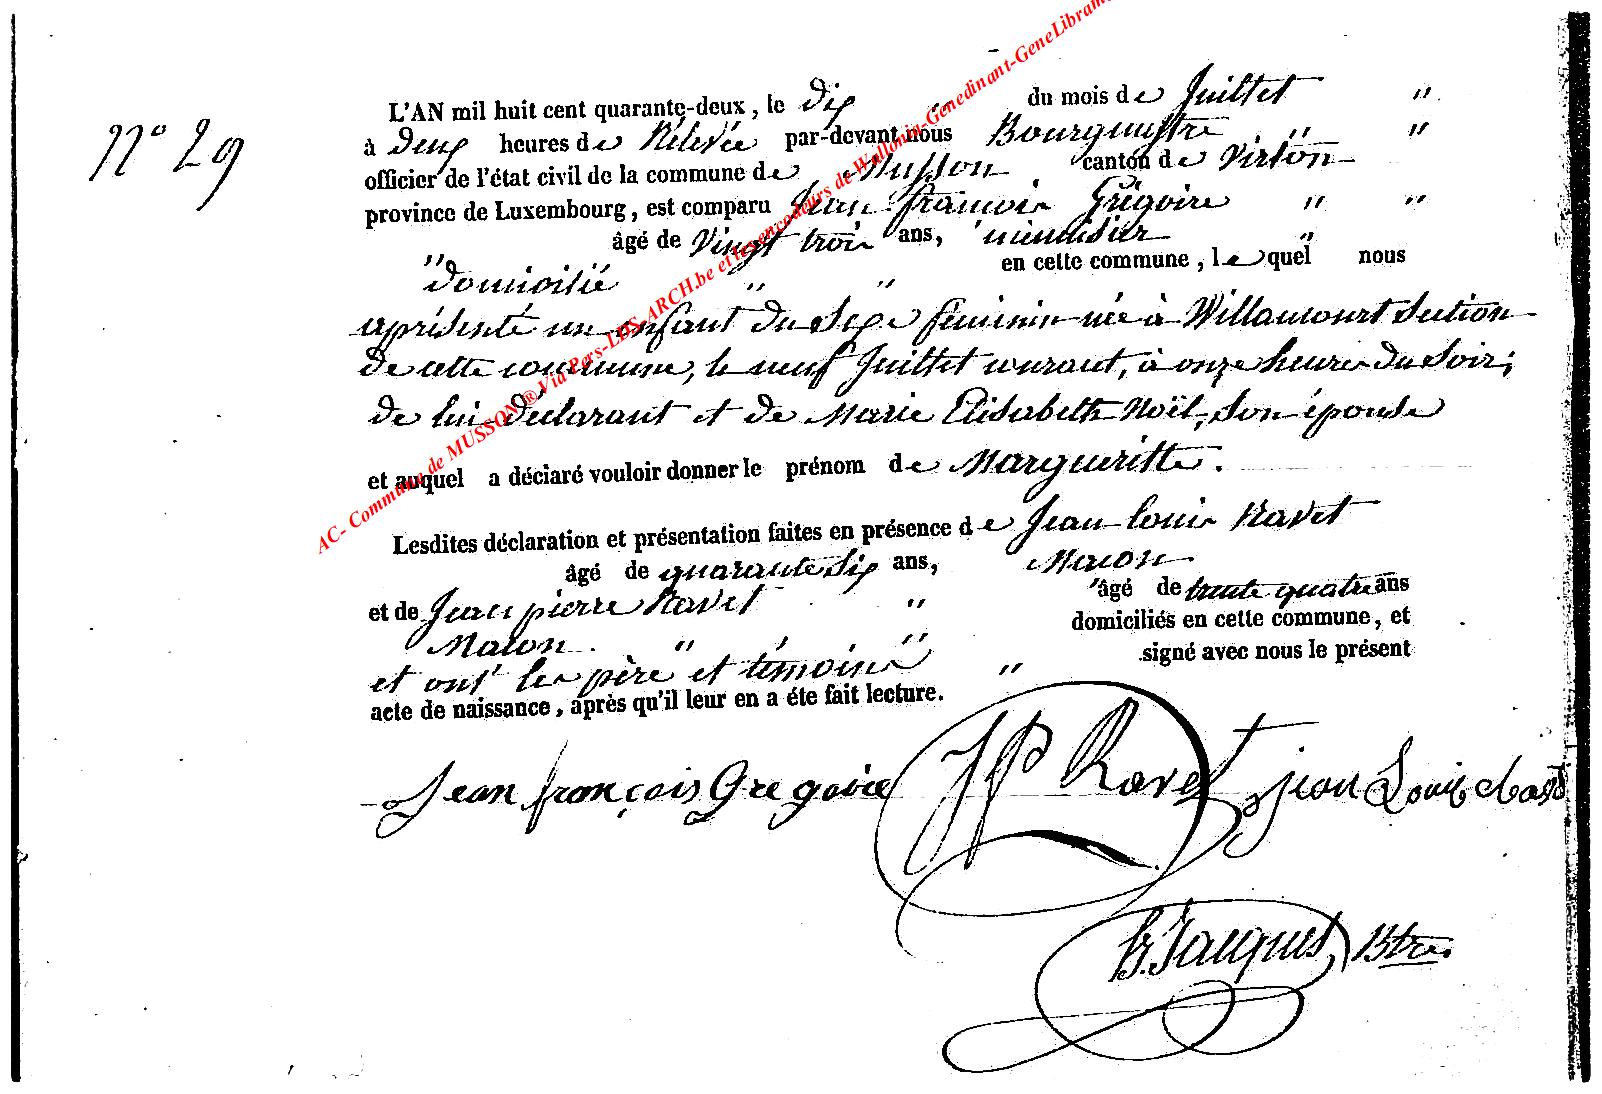 N° 29
L'AN mil huit cent quarante-deux, le dix du mois de Juillet "
à Deux heures de Rélevée par-devant nous Bourguestre " "
officier de l'état civil de la commune de Musson canton de Virton
province de Luxembourg, est comparu Jean francois Grégoire " "
âgé de Vingt trois ans, menuisier "
" domicilié " " en cette commune, le quel nous
a présenté un enfant du Sexe féminin née à Willancourt Section
de cette commune, le neuf Juillet courant, à onze heures du Soir;
de lui déclarant et de Marie Elisabeth Noël, Son épouse
et auquel a déclaré vouloir donner le prénom de Margueritte.
Lesdites déclaration et présentation faites en présence de Jean Louis Ravet
âgé de quarante Six ans, Macon
et de Jean pierre Ravet " âgé de trente quatre ans
Macon. " " domiciliés en cette commune, et
et ont les père et témoins " signé avec nous le présent
acte de naissance, après qu'il leur en a éte fait lecture.
Jean françois Gregoire JP Ravet jean Louis
Jacques Btre.
AC- Commune de MUSSON ® Via Pers-LDS-ARCH.be et les encodeurs de Wallonin-Genedinant-GeneLibram